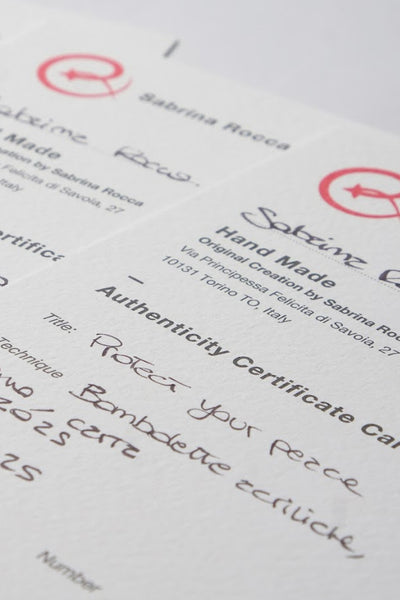 Sabrina Rocca
Sabrina Rocca
Made
Creation by Sabrina Rocca
Felicita di Savoia, 27
Italy
Certifica
Sabrina
Hand Made
Original Creation by Sabrina Rocc
Via Principessa Felicita di Savoia, 27
10131 Torino TO, Italy
Authenticity Certificate Car
Title: Protect your peace
Technique Bombolette acriliche,
carta
2025
25
Number